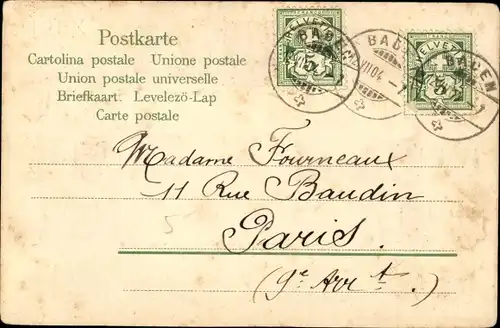 Postkarte
Cartolina postale Unione postale
Union postale universelle
Briefkaart. Levelezö-Lap
Carte postale
HELVETIA
5
BADEN
BADEN
VII 04
HELVETIA
5
BADEN
Madame Fourneaux
11 Rue Baudin
5
Paris.
(9e Arrt).